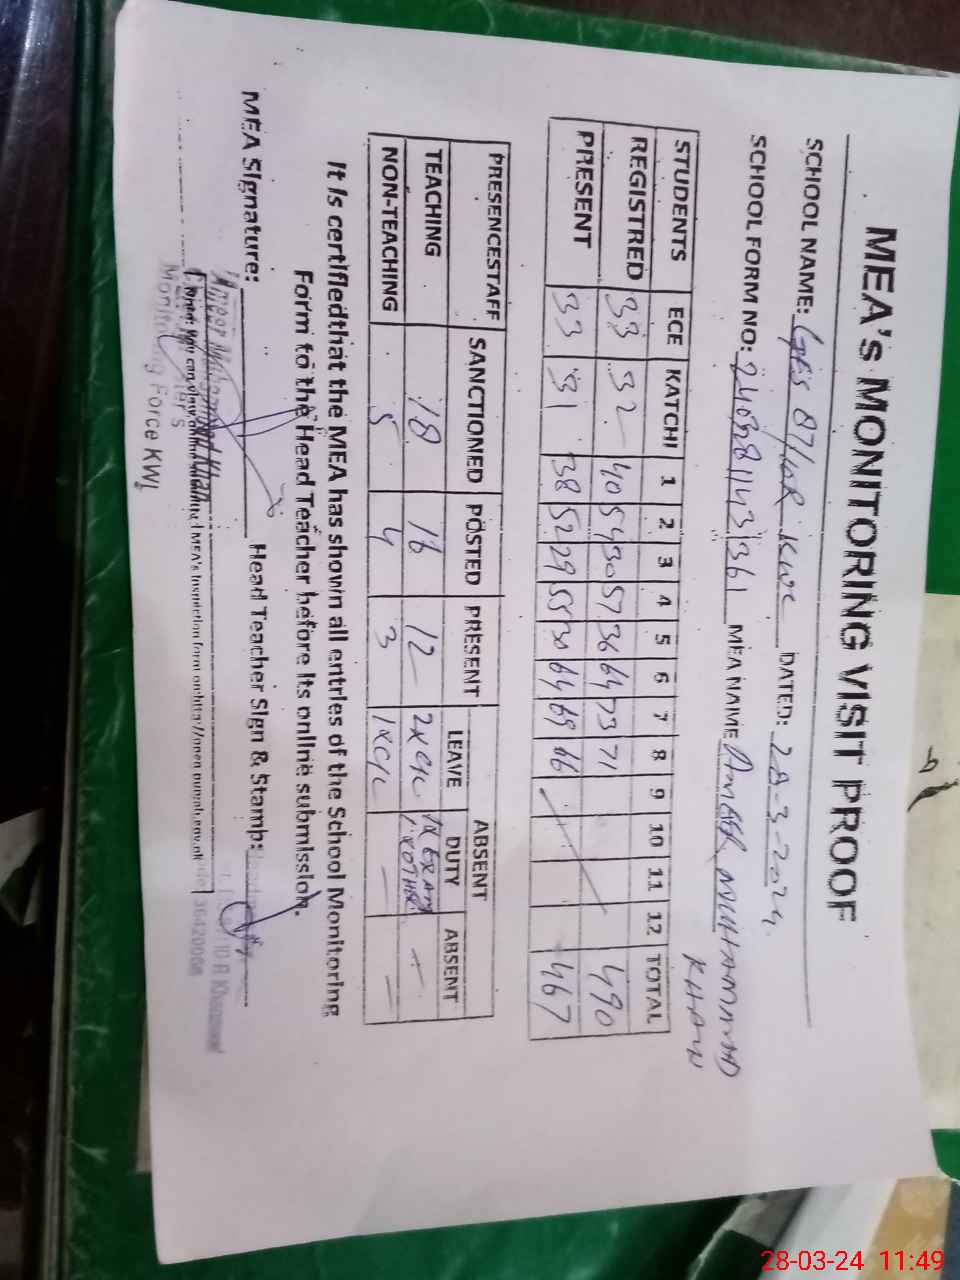 MEA's MONITORING VISIT PROOF
SCHOOL NAME: 87/10R KWL DATED: 28-3-2024
SCHOOL FORM NO: MEA NAME AMEER MUHAMMAD
KHAN
STUDENTS ECE KATCHI 1 2 3 4 5 6 7 8 9 10 11 12 TOTAL
REGISTRED 33 32 40 54 30 57 36 64 73 71 490
PRESENT 33 31 38 52 29 55 30 64 69 66 467
PRESENCESTAFF SANCTIONED POSTED PRESENT ABSENT
LEAVE DUTY ABSENT
TEACHING 18 16 12 2xC/L -
NON-TEACHING 5 4 3 1xC/L - -
It Is certifiedthat the MEA has shown all entries of the School Monitoring
Form to the Head Teacher before its online submission.
MEA Signature: Head Teacher Sign & Stamp:
Ameer Muhammad Khan
Monitoring Force KWL
28-03-24 11:49